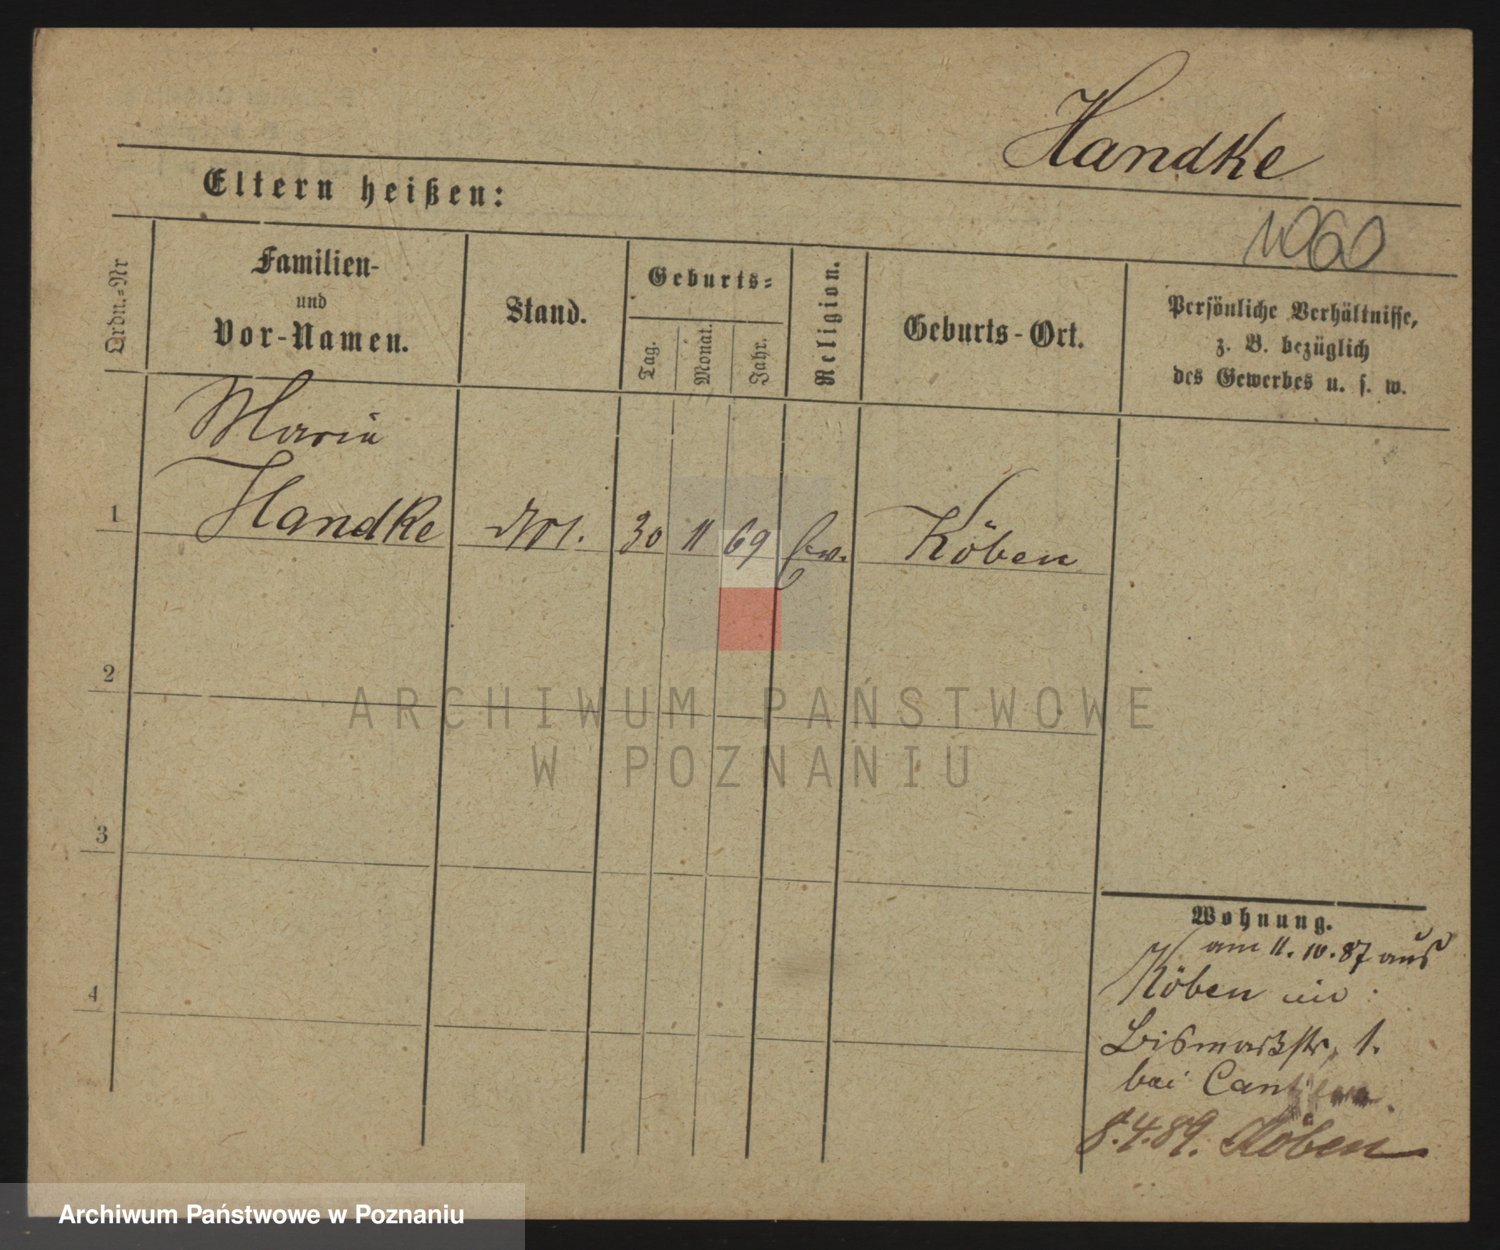 Handke
Eltern heißen:
1060
Ordn.-Nr
Familien-
und
Vor-Namen.
Stand.
Geburts-
Tag.
Monat.
Jahr.
Religion.
Geburts-Ort.
Persönliche Verhältnisse,
z. B. bezüglich
des Gewerbes u. s. w.
Maria
1 Handke 30 11 69 ev. Köben
2
3
4
ARCHIWUM PAŃSTWOWE
W POZNANIU
Wohnung.
am 11.10.87 aus
Köben
Bismarkstr. 1.
bei
8.4.89. Köben
Archiwum Państwowe w Poznaniu